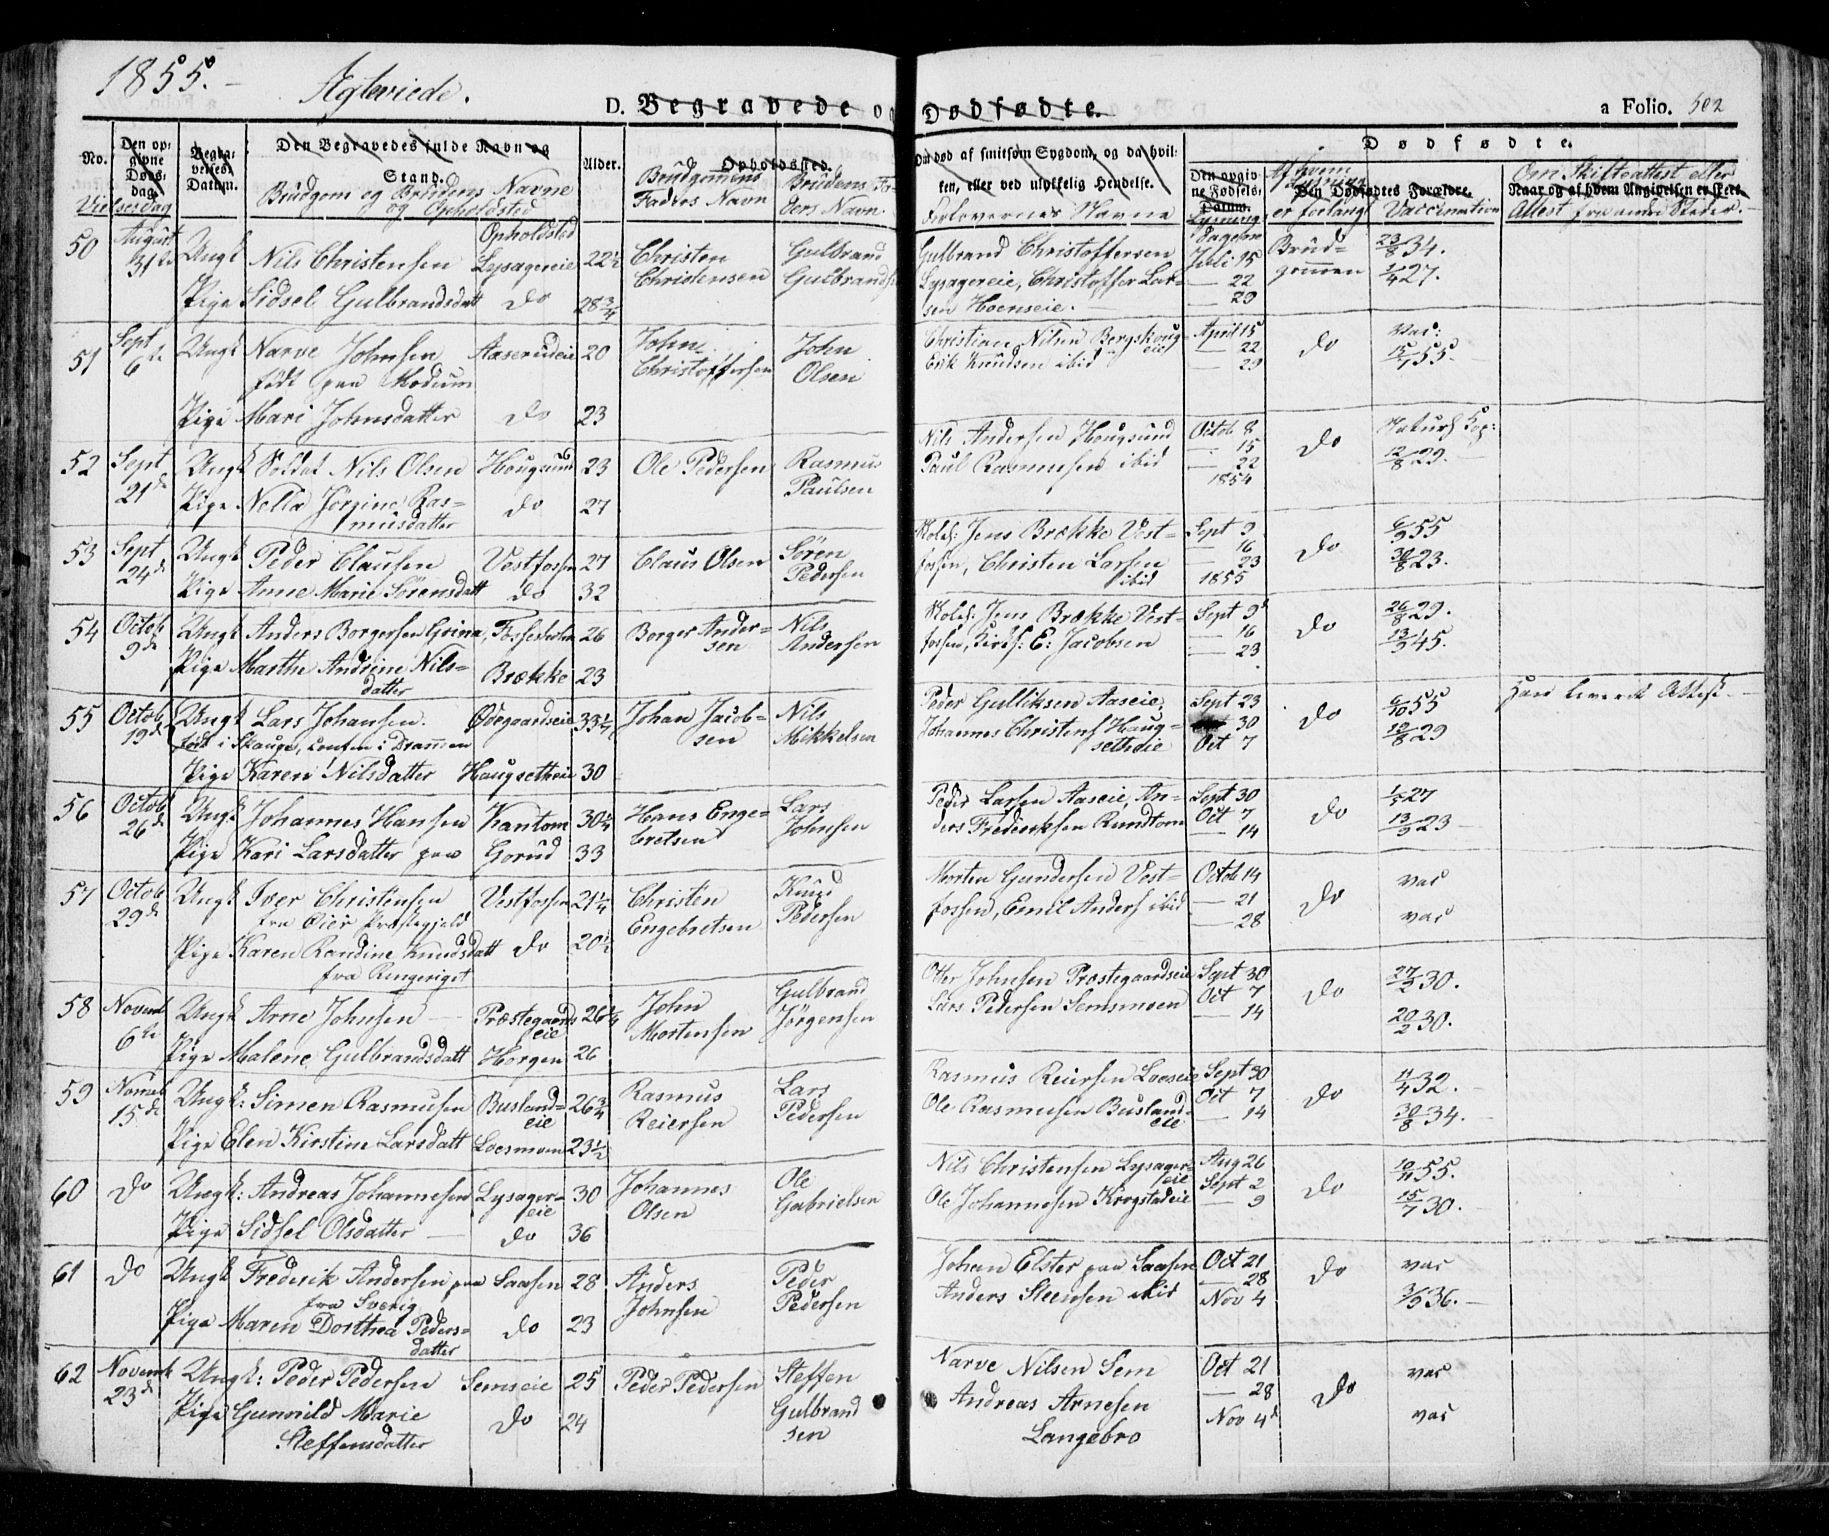 1855. - Ægteviede.
D. Begravede og Dødfødte. a Folio. 502
No.
Den opgivne Døds-dag.
Vielsesdag
Begravelses Datum.
Den Begravedes fulde Navn og Stand.
Brudgom og Brudens Navne og Opholdsted
Alder.
Opholdssted.
Brudgommens Faders Navn
Brudens Faders Navn.
Om død af smitsom Sygdom, og da hvilken, eller ved ulykkelig Hendelse.
Forlovernes Navne
Dødfødte.
Den opgivne Fødsels-Datum.
Lysnings Dagene
Den Dødfødtes Forældre.
Af hvem Lysning er forlangt
Vaccination
Naar og af hvem Angivelsen er skeet.
Om Skifteattest eller Attest fra andre Steder.
Opholdsted
50 August 31te Ungk Nils Christensen Lysagereie 22½ Christen Christensen Gulbrand Gulbrands
Pige Sidsel Gulbrandsdatt do 28¾
Gulbrand Christoffersen Lysagereie, Christoffer Larsen Hoenseie. Juli 15 — 22 — 29 Brudgommen 23/8 34. 1/4 27.
51 Sept 6te Ungk Narve Johnsen Aaserudeie 20 John Christoffersen John Olsen
født paa Modum
Pige Mari Johnsdatter do 23
Christian Nilsen Bergskougeie Erik Knudsen ibid April 15 — 22 — 29 do Vac: 15/7 55.
52 Sept 21de Ungk Soldat Nils Olsen Hougsund 23 Ole Pedersen Rasmus Paulsen
Pige Nella Jørgine Rasmusdatter do 27
Nils Andersen Hougsund Paul Rasmusen ibid Octob 8 — 15 — 22 1854 do Naturl Kop: 12/8 29.
53 Sept 24de Ungk Peder Clausen Vestfossen 27 Claus Olsen Søren Pedersen
Pige Anne Marie Sørensdatt do 32
Kolds: Jens Brække Vestfossen, Christen Larsen ibid Sept 9 — 16 — 23 1855 do 6/9 55 30/8 23.
54 Octob 9de Ungk Anders Borgersen Grina, 26 Borger Andersen Nils Andersen
Pige Marthe Andrine Nilsdatter Brække 23
Jens Brække Vestfossen, Kirks: E: Jacobsen Sept 9d — 16 — 23 do 26/8 29. 13/9 45.
55 Octob 19de Ungk Lars Johansen. Ødegaardseie 33¼ Johan Jacobsen Nils Mikkelsen
født i Skauge, i Drammen
Pige Karen Nilsdatter Haugsetheie 30
Peder Gulliksen Aaseie, Johannes Christens Haugsetheie Sept 23 30 Oct 7 do 6/10 55 12/8 29 Han leveret Attest
56 Octob 26de Ungk Johannes Hansen Rantom 30¼ Hans Engebretsen Lars Johnsen
Pige Kari Larsdatter paa Gorud 33
Peder Larsen Aaseie, Anders Frederiksen Rundtom Sept 30 Oct 7 — 14 do 1/5 27 13/9 23
57 Octob 29de Ungk Iver Christensen Vestfossen 21¼ Christen Engebretsen Knud Pedersen
fra Øier Præstegjeld
Pige Karen Randine Knudsdatt do 20½
fra Ringeriget
Morten Gundersen Vestfossen, Emil Anders ibid Octob 14 — 21 — 28 do vac vac
58 Novemb 6te Ungk Arne Johnsen Præstegaardseie 26¼ John Mortensen Gulbrand Jørgensen
Pige Malene Gulbrandsdatt Horgen 26
Otter Johnsen Præstegaardseie Lars Pedersen Semsmoen Sept 30 Oct 7 — 14 do 27/5 30. 20/2 30.
59 Novemb 15de Ungk: Simen Rasmusen Buslandeie 26¾ Rasmus Reiersen Lars Pedersen
Pige Elen Kirstine Larsdatt Loesmoen 23½
Rasmus Reiersen Loeseie Ole Rasmusen Buslandeie Sept 30 Oct 7 — 14 do 11/4 32. 30/8 34.
60 do Ungk: Andreas Johannesen Lysagereie 30 Johannes Olsen Ole Gabrielsen
Pige Sidsel Olsdatter do 36
Nils Christensen Lysagereie Ole Johannesen Krogstadeie Aug 26 Sept 2 — 9 do 10/11 55. 15/7 30.
61 do Ungk Frederik Andersen paa Saasen 28 Anders Johnsen Peder Pedersen
fra Sverig
Pige Maren Dorthea Pedersdatter do 23
Johan Elster paa Saasen Anders Steensen ibid Oct 21 — 28 Nov 4 do vac 3/9 36.
62 Novemb 23de Ungk: Peder Pedersen Semseie 25 Peder Pedersen Steffen Gulbrandsen
Pige Gunnild Marie Steffensdatter do 24
Narve Nilsen Sem Andreas Arnesen Langebro Oct 21 — 28 Nov 4d do vac vac